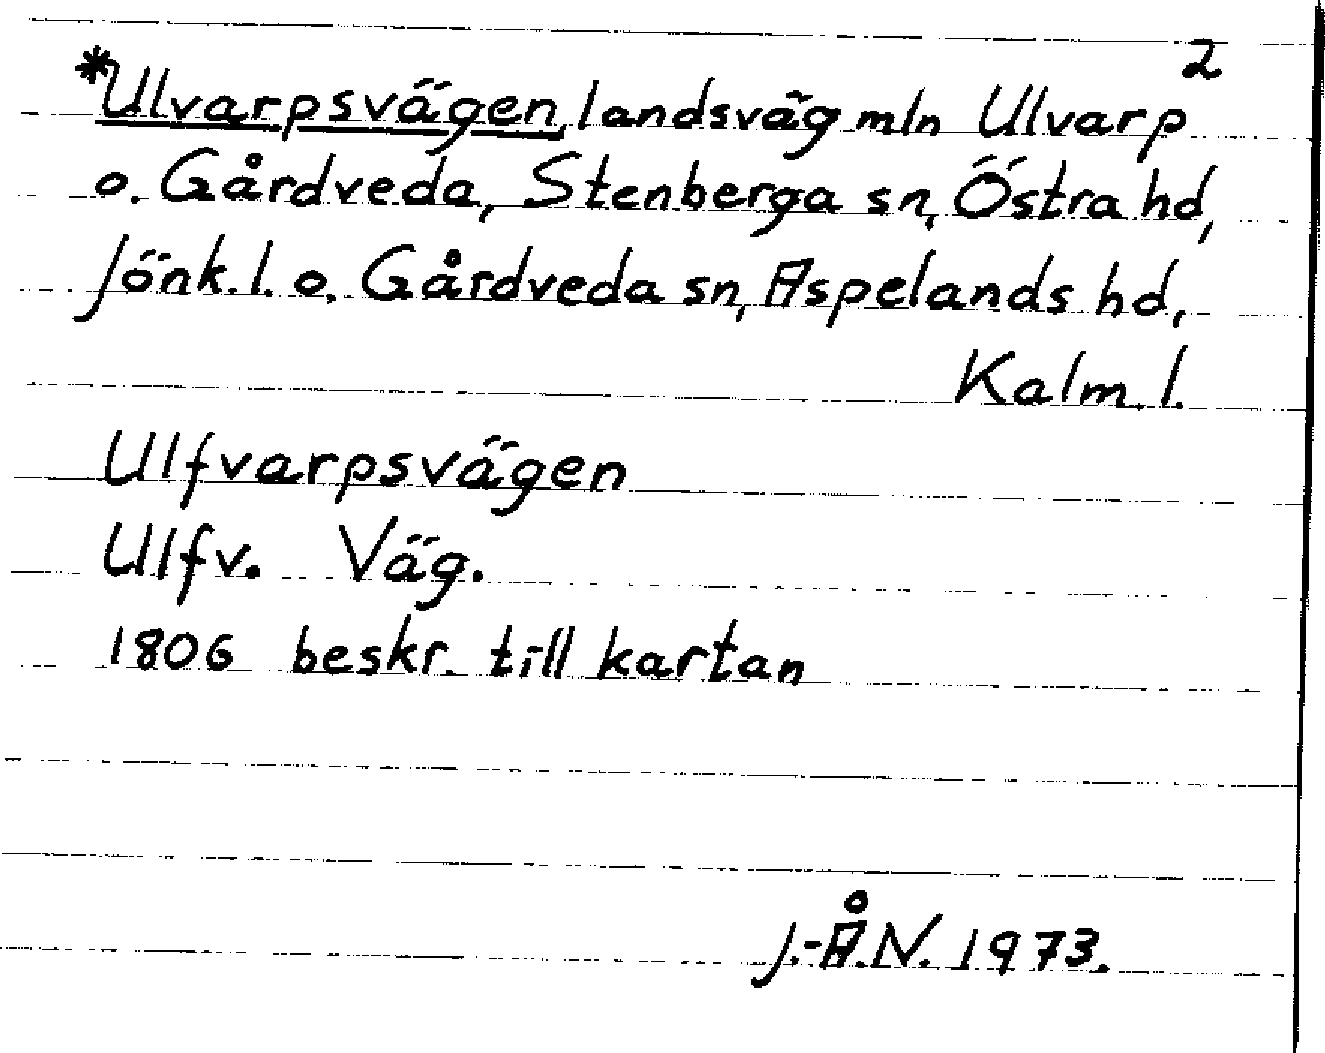 2
*Ulvarpsvägen, landsväg mln Ulvarp
o. Gårdveda, Stenberga sn, Östra hd,
Jönk. l. o. Gårdveda sn, Aspelands hd,
Kalm. l.
Ulfvarpsvägen
Ulfv. Väg.
1806 beskr. till kartan
J.-Å.N. 1973.